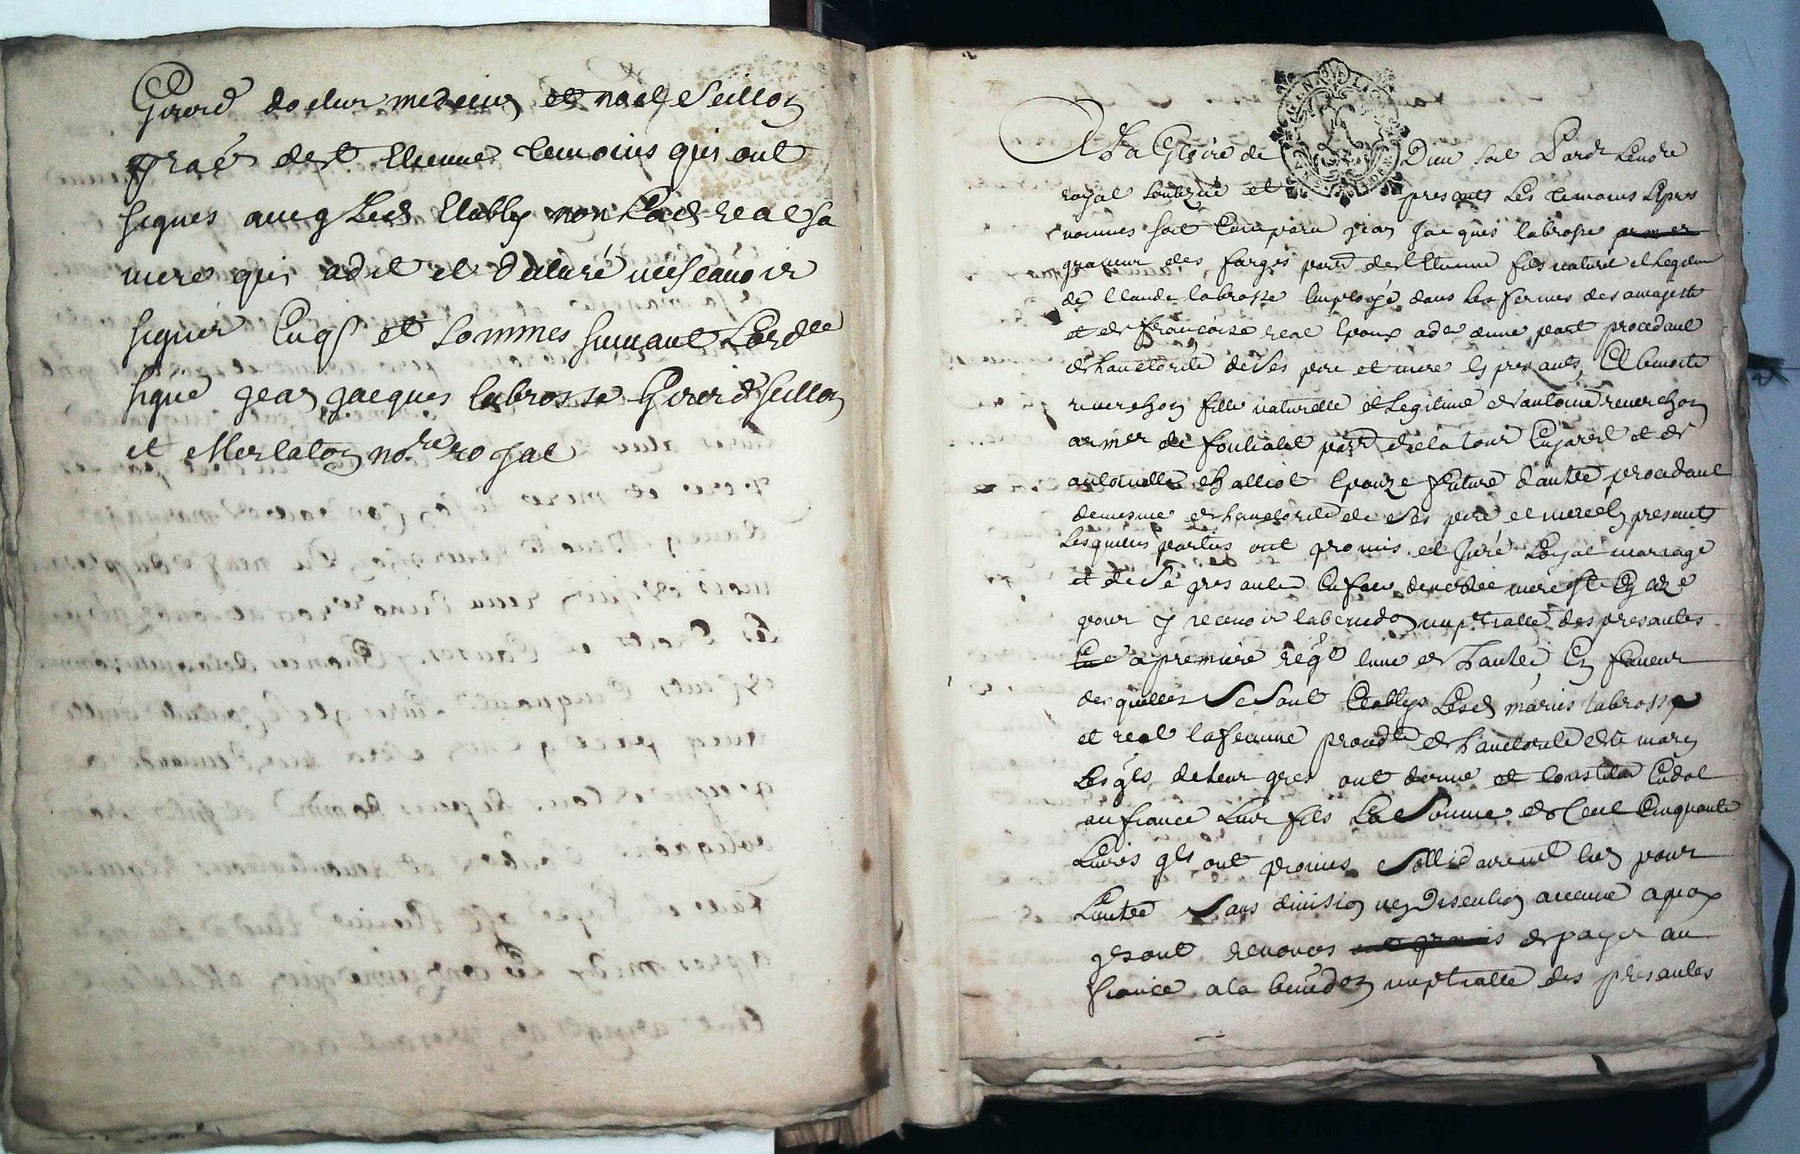 Girard docteur medecin et noel Seillon
graé de st Etienne temoins qui ont
signes aveq Lesd Etablys non Lad real sa
mere qui a dit et declaré ne scauoir
signer Enqs et sommes suiuant Lord
signé jean jacques labrosse Girard Seillon
et Merlaton no.re royal
A La Gloire de Dieu soit Pard Leno.re
royal soubzné et presants Les temoins apres
nommes soit Comparu jean jacques labrosse
graueur des forges part de st Etienne fils naturel et Legitime
de Claude labrosse Employé dans les fermes de sa majesté
et de francoise real Epoux a d'une part procedant
de Lauctorité de ses pere et mere Cy presants, Et benoite
reuerchon fille naturelle et Legitime de antoine reuerchon
armer de fouliatet part de la tour En jarest et de
antoinette challiot Epouze future d'autre procedant
de mesme de Lauctorité de ses pere et mere Cy presants
Lesquelles parties ont promis et juré Loyal mariage
et de se presanter En face de no.re mere ste Eglize
pour y receuoir la benedon nuptialle des presantes
a premiere reqte Lune de Lautre, En faueur
desquelles Se Sont Etablys Lesd maries labrosse
et real la femme procedte de Lauctorité de st mary
Lesqls de leur gres ont donné et Constitué En dot
au fiancé Leur fils La Somme de Cent Cinquante
Liures qls ont promis Sollidairement Lun pour
Lautre Sans diuision ny discution aucune a quoy
ils ont renoncés de payer au
fiancé a la benedon nuptialle des presantes